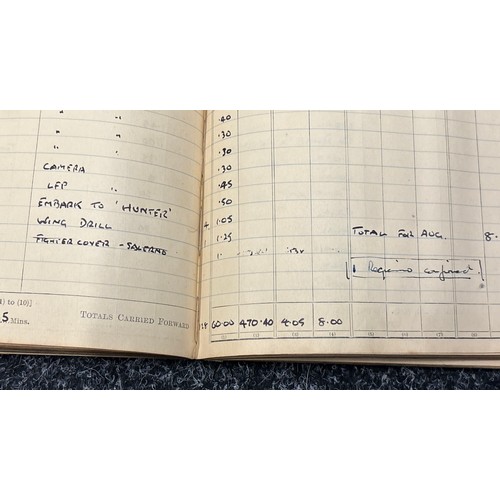 " " .40
" " .30
" " .30
CAMERA .30
LFP " .45
EMBARK TO 'HUNTER' .50
WING DRILL 1.05
FIGHTER COVER - SALERNO 1.25
TOTAL FOR AUG. 8.
confirmed
1) to (10)]
5 Mins. TOTALS CARRIED FORWARD 60.00 470.40 4.05 8.00